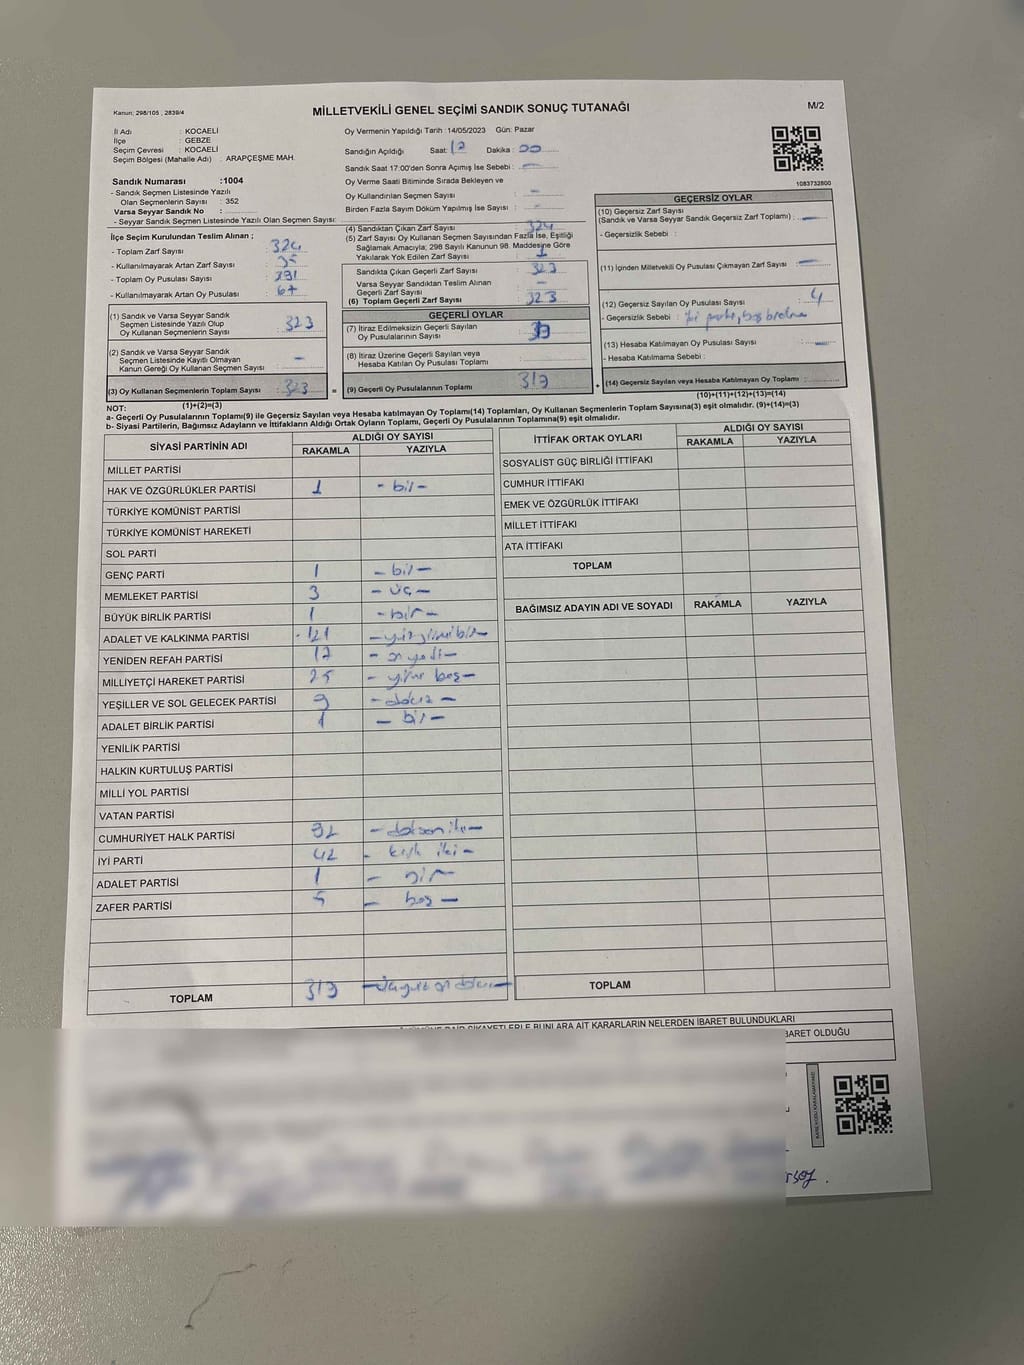 Kanun: 298/105 , 2839/4
MİLLETVEKİLİ GENEL SEÇİMİ SANDIK SONUÇ TUTANAĞI
M/2
İl Adı : KOCAELİ
İlçe : GEBZE
Seçim Çevresi : KOCAELİ
Seçim Bölgesi (Mahalle Adı) : ARAPÇEŞME MAH.
Oy Vermenin Yapıldığı Tarih : 14/05/2023 Gün: Pazar
Sandığın Açıldığı Saat: Dakika :
Sandık Saat 17:00'den Sonra Açımış İse Sebebi : —
Oy Verme Saati Bitiminde Sırada Bekleyen ve
Oy Kullandırılan Seçmen Sayısı —
Birden Fazla Sayım Döküm Yapılmış İse Sayısı : —
1083732800
Sandık Numarası :1004
- Sandık Seçmen Listesinde Yazılı
Olan Seçmenlerin Sayısı : 352
Varsa Seyyar Sandık No :
- Seyyar Sandık Seçmen Listesinde Yazılı Olan Seçmen Sayısı:
İlçe Seçim Kurulundan Teslim Alınan ;
- Toplam Zarf Sayısı :
- Kullanılmayarak Artan Zarf Sayısı : 35
- Toplam Oy Pusulası Sayısı : 391
- Kullanılmayarak Artan Oy Pusulası : 67
(1) Sandık ve Varsa Seyyar Sandık
Seçmen Listesinde Yazılı Olup
Oy Kullanan Seçmenlerin Sayısı : 323
(2) Sandık ve Varsa Seyyar Sandık
Seçmen Listesinde Kayıtlı Olmayan
Kanun Gereği Oy Kullanan Seçmen Sayısı : —
(3) Oy Kullanan Seçmenlerin Toplam Sayısı : 323 =
(1)+(2)=(3)
(4) Sandıktan Çıkan Zarf Sayısı : 324
(5) Zarf Sayısı Oy Kullanan Seçmen Sayısından Fazla İse, Eşitliği
Sağlamak Amacıyla, 298 Sayılı Kanunun 98. Maddesine Göre
Yakılarak Yok Edilen Zarf Sayısı : 1
Sandıkta Çıkan Geçerli Zarf Sayısı : 323
Varsa Seyyar Sandıktan Teslim Alınan
Geçerli Zarf Sayısı : —
(6) Toplam Geçerli Zarf Sayısı : 323
GEÇERLİ OYLAR
(7) İtiraz Edilmeksizin Geçerli Sayılan
Oy Pusulalarının Sayısı :
(8) İtiraz Üzerine Geçerli Sayılan veya
Hesaba Katılan Oy Pusulası Toplamı
(9) Geçerli Oy Pusulalarının Toplamı 319 +
GEÇERSİZ OYLAR
(10) Geçersiz Zarf Sayısı
(Sandık ve Varsa Seyyar Sandık Geçersiz Zarf Toplamı) : —
- Geçersizlik Sebebi :
(11) İçinden Milletvekili Oy Pusulası Çıkmayan Zarf Sayısı : —
(12) Geçersiz Sayılan Oy Pusulası Sayısı : 4
- Geçersizlik Sebebi :
(13) Hesaba Katılmayan Oy Pusulası Sayısı : —
- Hesaba Katılmama Sebebi :
(14) Geçersiz Sayılan veya Hesaba Katılmayan Oy Toplamı :
(10)+(11)+(12)+(13)=(14)
NOT:
a- Geçerli Oy Pusulalarının Toplamı(9) ile Geçersiz Sayılan veya Hesaba katılmayan Oy Toplamı(14) Toplamları, Oy Kullanan Seçmenlerin Toplam Sayısına(3) eşit olmalıdır. (9)+(14)=(3)
b- Siyasi Partilerin, Bağımsız Adayların ve İttifakların Aldığı Ortak Oyların Toplamı, Geçerli Oy Pusulalarının Toplamına(9) eşit olmalıdır.
SİYASİ PARTİNİN ADI
ALDIĞI OY SAYISI
RAKAMLA YAZIYLA
MİLLET PARTİSİ
HAK VE ÖZGÜRLÜKLER PARTİSİ 1 - bir -
TÜRKİYE KOMÜNİST PARTİSİ
TÜRKİYE KOMÜNİST HAREKETİ
SOL PARTİ
GENÇ PARTİ 1 - bir -
MEMLEKET PARTİSİ 3 - üç -
BÜYÜK BİRLİK PARTİSİ 1 - bir -
ADALET VE KALKINMA PARTİSİ 121 - yüzyirmibir -
YENİDEN REFAH PARTİSİ 17 - on yedi -
MİLLİYETÇİ HAREKET PARTİSİ 25 - yirmi beş -
YEŞİLLER VE SOL GELECEK PARTİSİ 9 - dokuz -
ADALET BİRLİK PARTİSİ 1 - bir -
YENİLİK PARTİSİ
HALKIN KURTULUŞ PARTİSİ
MİLLİ YOL PARTİSİ
VATAN PARTİSİ
CUMHURİYET HALK PARTİSİ 92 - doksan iki -
İYİ PARTİ 42 - kırk iki -
ADALET PARTİSİ 1 - bir -
ZAFER PARTİSİ 5 - beş -
TOPLAM 319 - üçyüz on dokuz -
İTTİFAK ORTAK OYLARI
ALDIĞI OY SAYISI
RAKAMLA YAZIYLA
SOSYALİST GÜÇ BİRLİĞİ İTTİFAKI
CUMHUR İTTİFAKI
EMEK VE ÖZGÜRLÜK İTTİFAKI
MİLLET İTTİFAKI
ATA İTTİFAKI
TOPLAM
BAĞIMSIZ ADAYIN ADI VE SOYADI RAKAMLA YAZIYLA
TOPLAM
KARARLARIN NELERDEN İBARET BULUNDUKLARI
BARET OLDUĞU